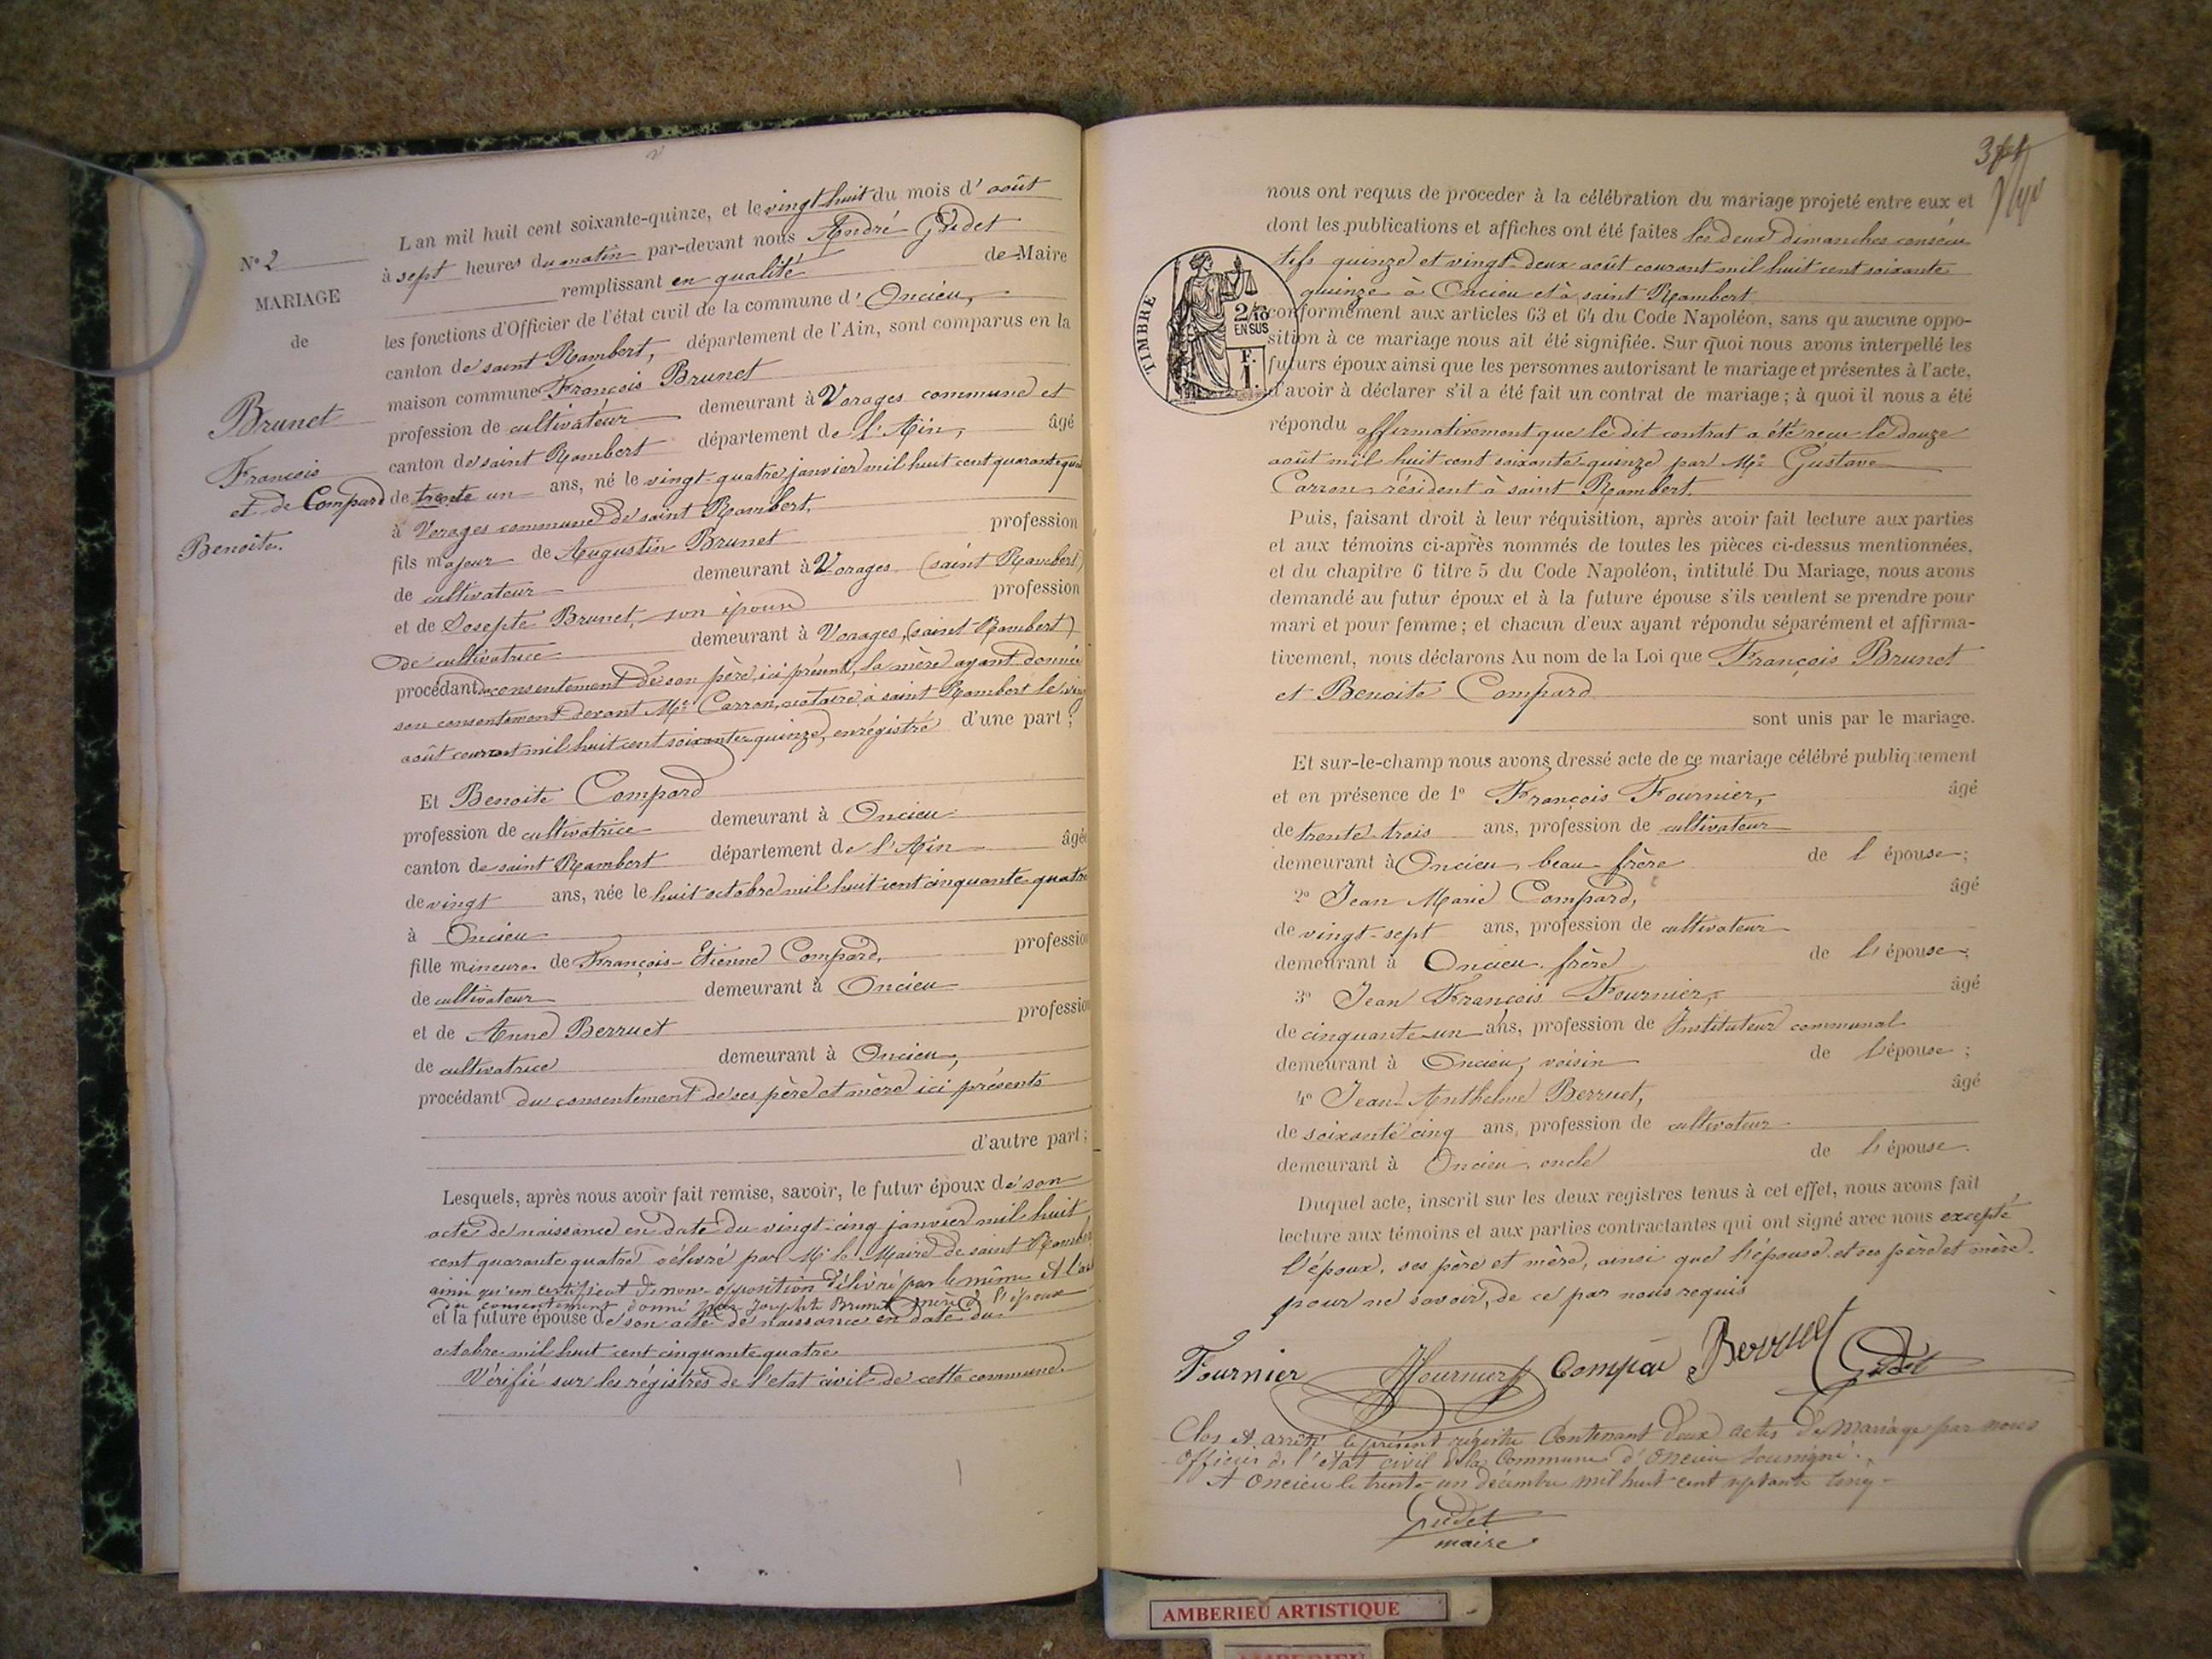 N° 2
MARIAGE
de
Brunet
François
et de Compard
Benoite.
L'an mil huit cent soixante-quinze, et le vingt-huit du mois d'août
à sept heures du matin par-devant nous André Gudet
remplissant en qualité de Maire
les fonctions d'Officier de l'état civil de la commune d'Oncieu,
canton de saint Rambert, département de l'Ain, sont comparus en la
maison commune François Brunet
profession de cultivateur demeurant à Vorages commune et
canton de saint Rambert département de l'Ain, âgé
de trente un ans, né le vingt-quatre janvier mil huit cent quarante
à Vorages commune de saint Rambert,
fils majeur de Augustin Brunet profession
de cultivateur demeurant à Vorages (saint Rambert)
et de Josepte Brunet, son profession
de cultivatrice demeurant à Vorages, (saint Rambert)
procédant consentement de son père, ici présent, la mère ayant donné
son consentement devant Me Carron, notaire à saint Rambert le
août courant mil huit cent soixante-quinze, enrégistré d'une part;
Et Benoite Compard
profession de cultivatrice demeurant à Oncieu
canton de saint Rambert département de l'Ain âgée
de vingt ans, née le huit octobre mil huit cent cinquante quatre
à Oncieu
fille mineure de François-Etienne Compard, profession
de cultivateur demeurant à Oncieu
et de Anne Berruet profession
de cultivatrice demeurant à Oncieu,
procédant du consentement de ses père et mère ici présents
d'autre part;
Lesquels, après nous avoir fait remise, savoir, le futur époux de son
acte de naissance en date du vingt-cinq janvier mil huit
cent quarante quatre délivré par Mr le Maire de saint Rambert
ainsi qu'un certificat de non-opposition délivré par le même et
du consentement donné par Josephte Brunet mère de l'époux
et la future épouse de son acte de naissance en date du
octobre mil huit cent cinquante quatre
Vérifié sur les régistres de l'état civil de cette commune.
nous ont requis de proceder à la célébration du mariage projeté entre eux et
dont les publications et affiches ont été faites les deux dimanches consécu
tifs quinze et vingt-deux août courant mil huit cent soixante
quinze à Oncieu et à saint Rambert
TIMBRE
2/10
EN SUS
F.
1.
conformément aux articles 63 et 64 du Code Napoléon, sans qu'aucune oppo-
sition à ce mariage nous ait été signifiée. Sur quoi nous avons interpellé les
futurs époux ainsi que les personnes autorisant le mariage et présentes à l'acte,
d'avoir à déclarer s'il a été fait un contrat de mariage; à quoi il nous a été
répondu affirmativement que le dit contrat a été reçu le douze
août mil huit cent soixante-quinze par Me Gustave
Carron, résident à saint Rambert.
Puis, faisant droit à leur réquisition, après avoir fait lecture aux parties
et aux témoins ci-après nommés de toutes les pièces ci-dessus mentionnées,
et du chapitre 6 titre 5 du Code Napoléon, intitulé Du Mariage, nous avons
demandé au futur époux et à la future épouse s'ils veulent se prendre pour
mari et pour femme; et chacun d'eux ayant répondu séparément et affirma-
tivement, nous déclarons Au nom de la Loi que François Brunet
et Benoite Compard
sont unis par le mariage.
Et sur-le-champ nous avons dressé acte de ce mariage célébré publiquement
et en présence de 1° François Fournier, âgé
de trente-trois ans, profession de cultivateur
demeurant à Oncieu, beau-frère de l'épouse;
2° Jean Marie Compard, âgé
de vingt-sept ans, profession de cultivateur
demeurant à Oncieu frère de l'épouse;
3° Jean François Fournier, âgé
de cinquante-un ans, profession de Instituteur communal
demeurant à Oncieu, voisin de l'épouse;
4° Jean-Anthelme Berruet, âgé
de soixante cinq ans, profession de cultivateur
demeurant à Oncieu, oncle de l'épouse.
Duquel acte, inscrit sur les deux registres tenus à cet effet, nous avons fait
lecture aux témoins et aux parties contractantes qui ont signé avec nous excepté
l'époux, ses père et mère, ainsi que l'épouse et ses père et mère.
pour ne savoir, de ce par nous requis
Fournier Fournier Compar Berruet Gudet
Clos et arrêté le présent régistre Contenant deux actes de Mariage par nous
officier de l'état civil de la Commune d'Oncieu soussigné.
A Oncieu le trente-un décembre mil huit cent septante cinq
Gudet
maire
AMBERIEU ARTISTIQUE
AMBERIEU